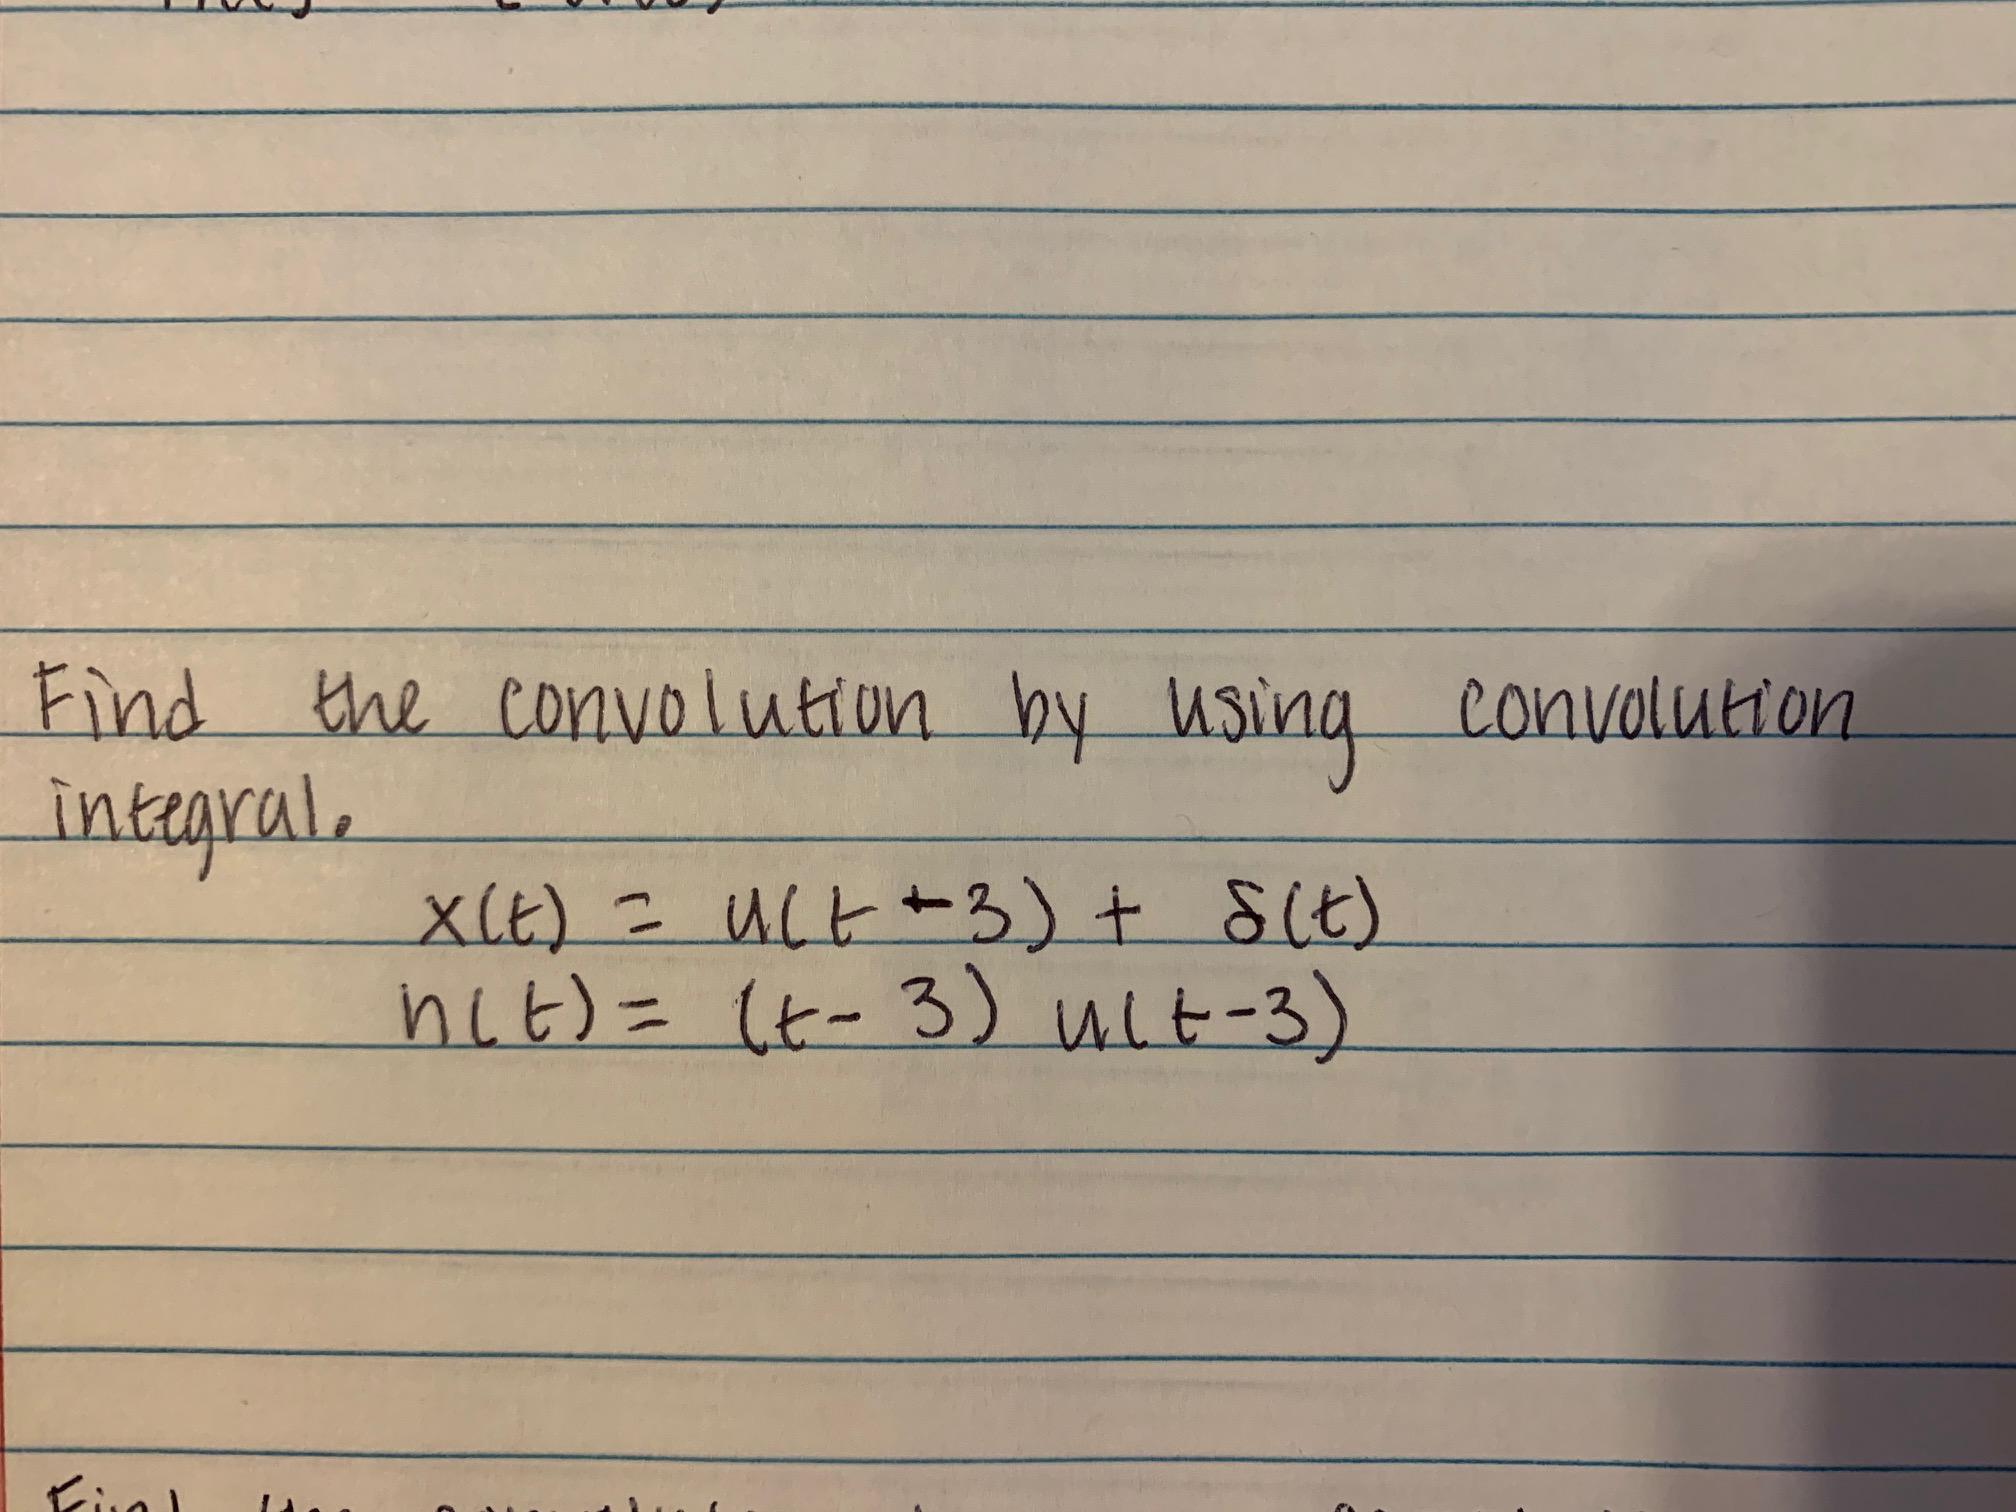 Find the convolution by using convolution
integral.
x(t) = u(t + 3) + δ(t)
h(t) = (t - 3) u(t-3)
Find the